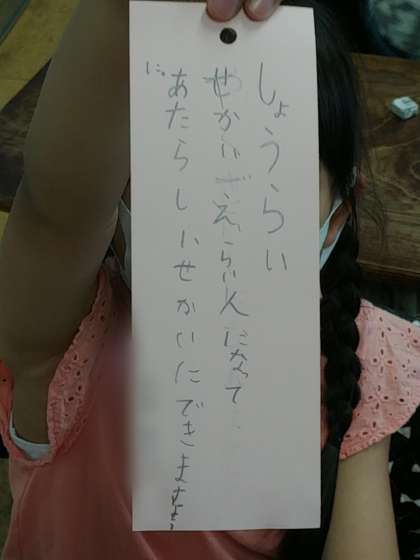 しょうらい
せかいでえらい人になって
あたらしいせかいにできますよう
に。